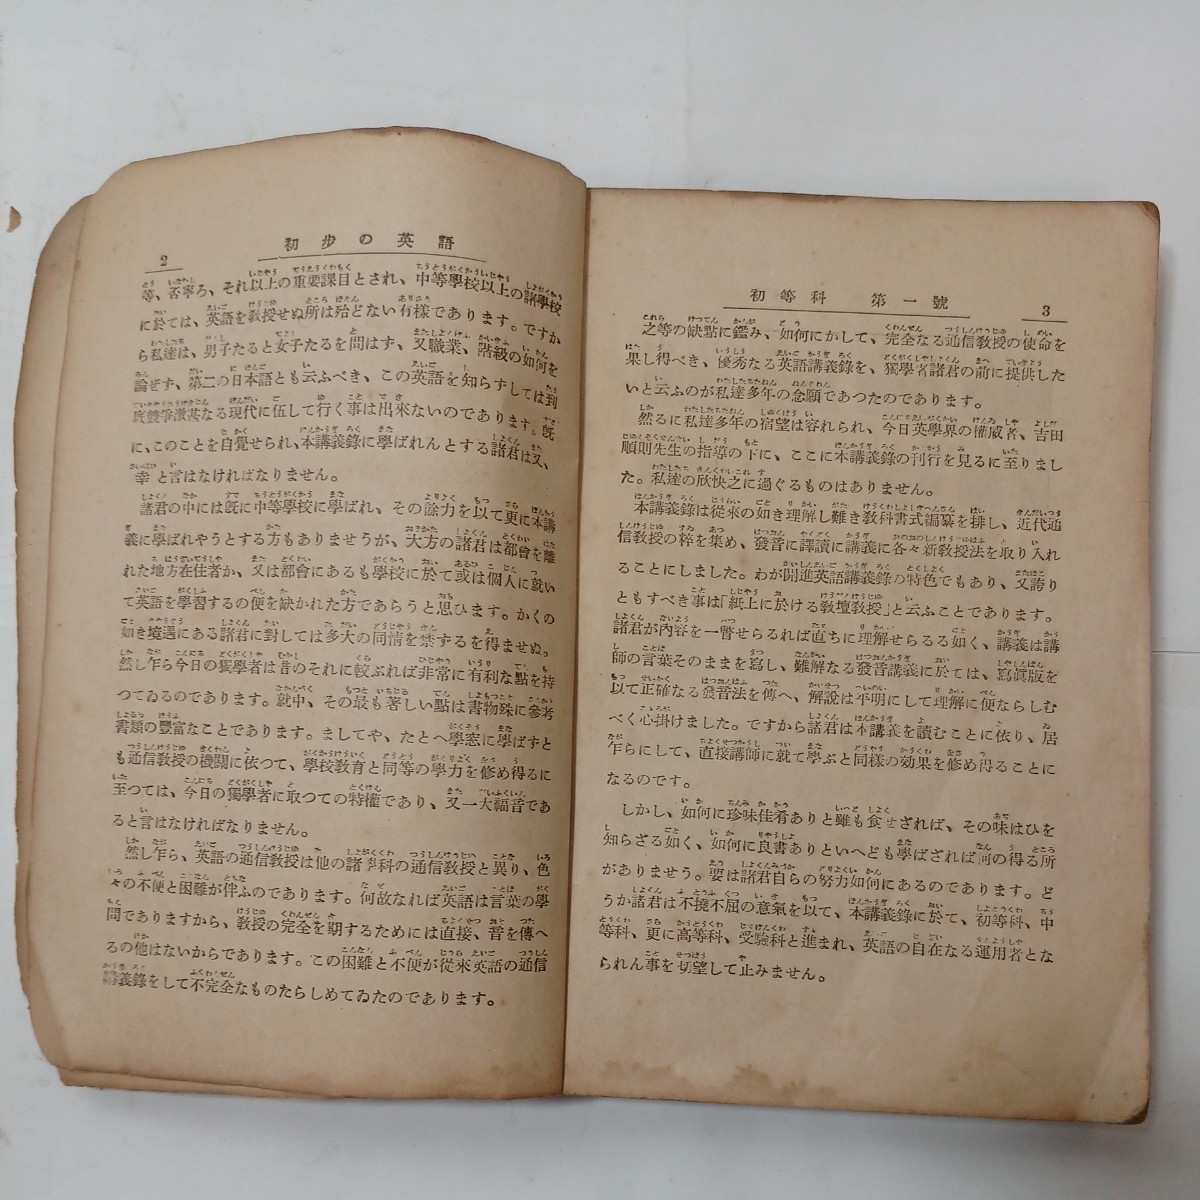 2
初步の英語
等、否寧ろ、それ以上の重要課目とされ、中等學校以上の諸學校
に於ては、英語を教授せぬ所は殆どない有樣であります。ですか
ら私達は、男子たると女子たるを問はず、又職業、階級の如何を
論ぜず、第二の日本語とも云ふべき、この英語を知らずしては到
底競爭激甚なる現代に伍して行く事は出來ないのであります。既
に、このことを自覺せられ、本講義錄に學ばれんとする諸君は又、
幸と言はなければなりません。
諸君の中には既に中等學校に學ばれ、その餘力を以て更に本講
義に學ばれやうとする方もありませうが、大方の諸君は都會を離
れた地方在住者か、又は都會にあるも學校に於て或は個人に就い
て英語を學習するの便を缺かれた方であらうと思ひます。かくの
如き境遇にある諸君に對しては多大の同情を禁ずるを得ませぬ。
然し乍ら今日の獨學者は昔のそれに較ぶれば非常に有利な點を持
つてゐるのであります。就中、その最も著しい點は書物殊に參考
書類の豐富なことであります。ましてや、たとへ學窓に學ばずと
も通信教授の機關に依つて、學校教育と同等の學力を修め得るに
至つては、今日の獨學者に取つての特權であり、又一大福音であ
ると言はなければなりません。
然し乍ら、英語の通信教授は他の諸學科の通信教授と異り、色
々の不便と困難が伴ふのであります。何故なれば英語は言葉の學
問でありますから、教授の完全を期するためには直接、音を傳へ
るの他はないからであります。この困難と不便が從來英語の通信
講義錄をして不完全なものたらしめてゐたのであります。
初等科　第一號
3
之等の缺點に鑑み、如何にかして、完全なる通信教授の使命を
果し得べき、優秀なる英語講義錄を、獨學者諸君の前に提供した
いと云ふのが私達多年の念願であつたのであります。
然るに私達多年の宿望は容れられ、今日英學界の權威者、吉田
順則先生の指導の下に、ここに本講義錄の刊行を見るに至りまし
た。私達の欣快之に過ぐるものはありません。
本講義錄は從來の如き理解し難き教科書式編纂を排し、近代通
信教授の粹を集め、發音に譯讀に講義に各々新教授法を取り入れ
ることにしました。わが開進英語講義錄の特色でもあり、又誇り
ともすべき事は「紙上に於ける教壇教授」と云ふことであります。
諸君が內容を一瞥せらるれば直ちに理解せらるる如く、講義は講
師の言葉そのままを寫し、難解なる發音講義に於ては、寫眞版を
以て正確なる發音法を傳へ、解說は平明にして理解に便ならしむ
べく心掛けました。ですから諸君は本講義を讀むことに依り、居
乍らにして、直接講師に就て學ぶと同樣の効果を修め得ることに
なるのです。
しかし、如何に珍味佳肴ありと雖も食せざれば、その味はひを
知らざる如く、如何に良書ありといへども學ばざれば何の得る所
がありませう。要は諸君自らの努力如何にあるのであります。ど
うか諸君は不撓不屈の意氣を以て、本講義錄に於て、初等科、中
等科、更に高等科、受驗科と進まれ、英語の自在なる運用者とな
られん事を切望して止みません。